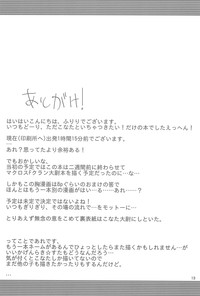 あとがき!
はいはいこんにちは、ふりりでございます。
いつもどーり、ただこなたといちゃつきたい!だけの本でしたえっへん!
現在(印刷所へ)出発1時間15分前でございます。
…
あれ?思ってたより余裕ある!
でもおかしいな、
当初の予定ではこの本は二週間前に終わらせて
マクロスFクラン大尉本を描く予定だったのに…な…
しかもこの胸漫画は8pぐらいのおまけの筈で
ほんとうはもう一本別の漫画がは…る…あれ…?
予定は未定で決定ではないよね!
いつもぎりぎり、その場の流れで…をモットーに…
とりあえず無念の思いを込めて裏表紙はこなた大尉にしといた。
ってことであれです。
もう一本ネームがあるんでひょっとしたらまた描くかもしれませんが
いいかげんらき☆すた本もどうなんだろう…
気が付くとこなたしか描いてないので
また他の子も描きたかったりもするんだけど。
…